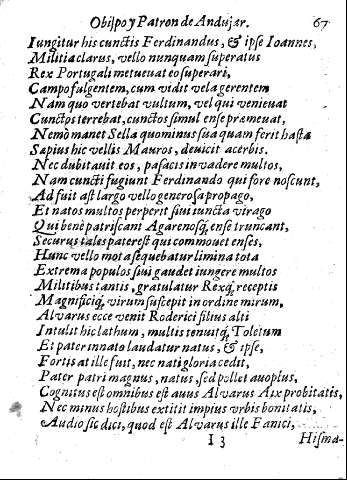 Obispo y Patron de Andujar. 67
Iungitur his cunctis Ferdinandus, & ipse Ioannes,
Militia clarus, vello nunquam superatus
Rex Portugali metueuat eo superari,
Campo fulgentem, cum vidit vela gerentem
Nam quo vertebat vultum, vel qui venieuat
Cunctos terrebat, cunctos simul ense prameuat,
Nemò manet Sella quominus sua quam ferit hasta
Sæpius hic vellis Mauros, deuicit acerbis.
Nec dubitauit eos, pasacis invadere multos,
Nam cuncti fugiunt Ferdinando qui fore noscunt,
Ad fuit ast largo vello generosa propago,
Et natos multos perperit siui iuncta virago
Qui benè patriscant Agarenosq; ense truncant,
Securus tales pater est qui commouet enses,
Hunc vello mota sequebatur limina tota
Extrema populos siui gaudet iungere multos
Militibus tantis, gratulatur Rexq; receptis
Magnificiq; virum suscepit in ordine mirum,
Alvarus ecce venit Roderici filius alti
Intulit hic lathum, multis tenuitq; Toletum
Et pater innato laudatur natus, & ipse,
Fortis at ille fuit, nec nati gloria cedit,
Pater patri magnus, natus, sed pollet auoplus,
Cognitus est omnibus est auus Alvarus Aix probitatis,
Nec minus hostibus extitit impius vrbis bonitatis,
Audio sic dici, quod est Alvarus ille Fanici,
I 3 Hisma-